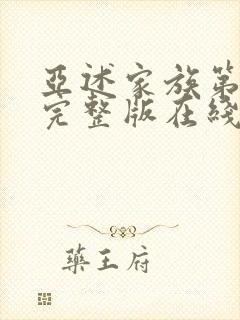 亞述家族第
完整版在綫
藥王府